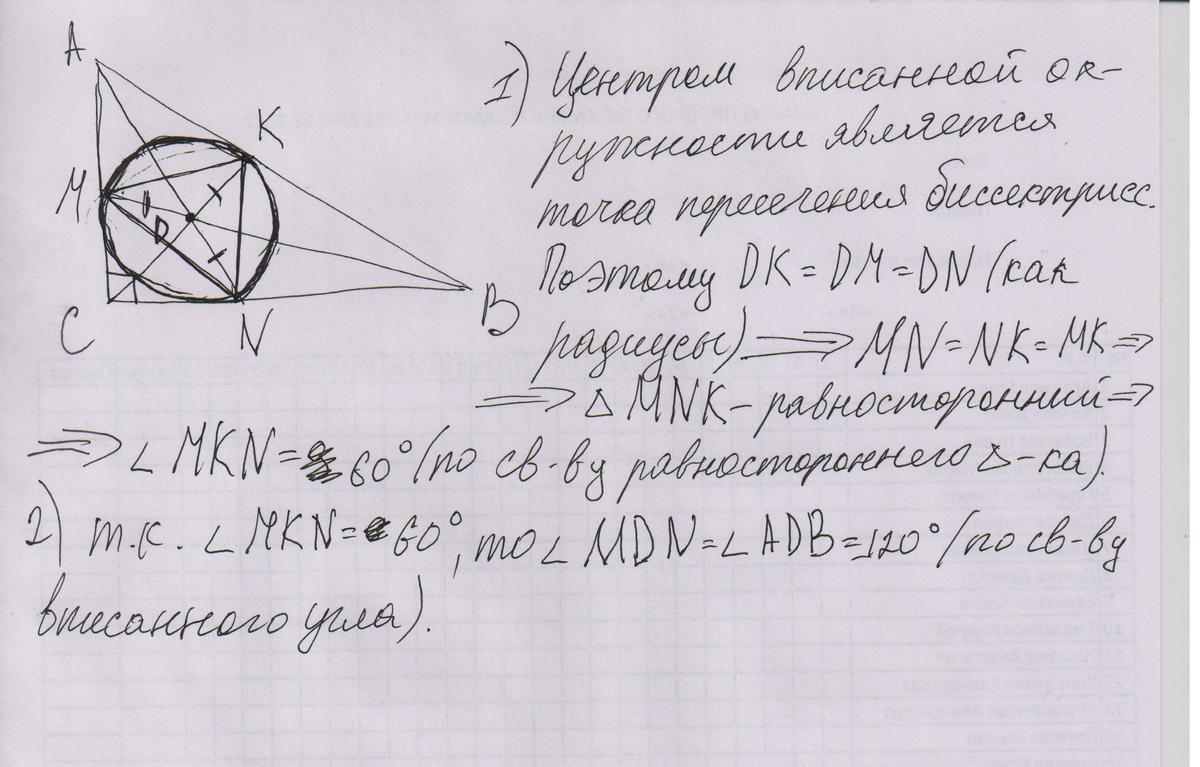 A
K
M
D
C
N
B
1) Центром вписанной ок-
ружности является
точка пересечения биссектрисс.
Поэтому DK = DM = DN (как
радиусы) ⟹ MN = NK = MK ⟹
⟹ △ MNK – равносторонний ⟹
⟹ ∠ MKN = 60° (по св-ву равностороннего △-ка).
2) т.к. ∠ MKN = 60°, то ∠ MDN = ∠ ADB = 120° (по св-ву
вписанного угла).